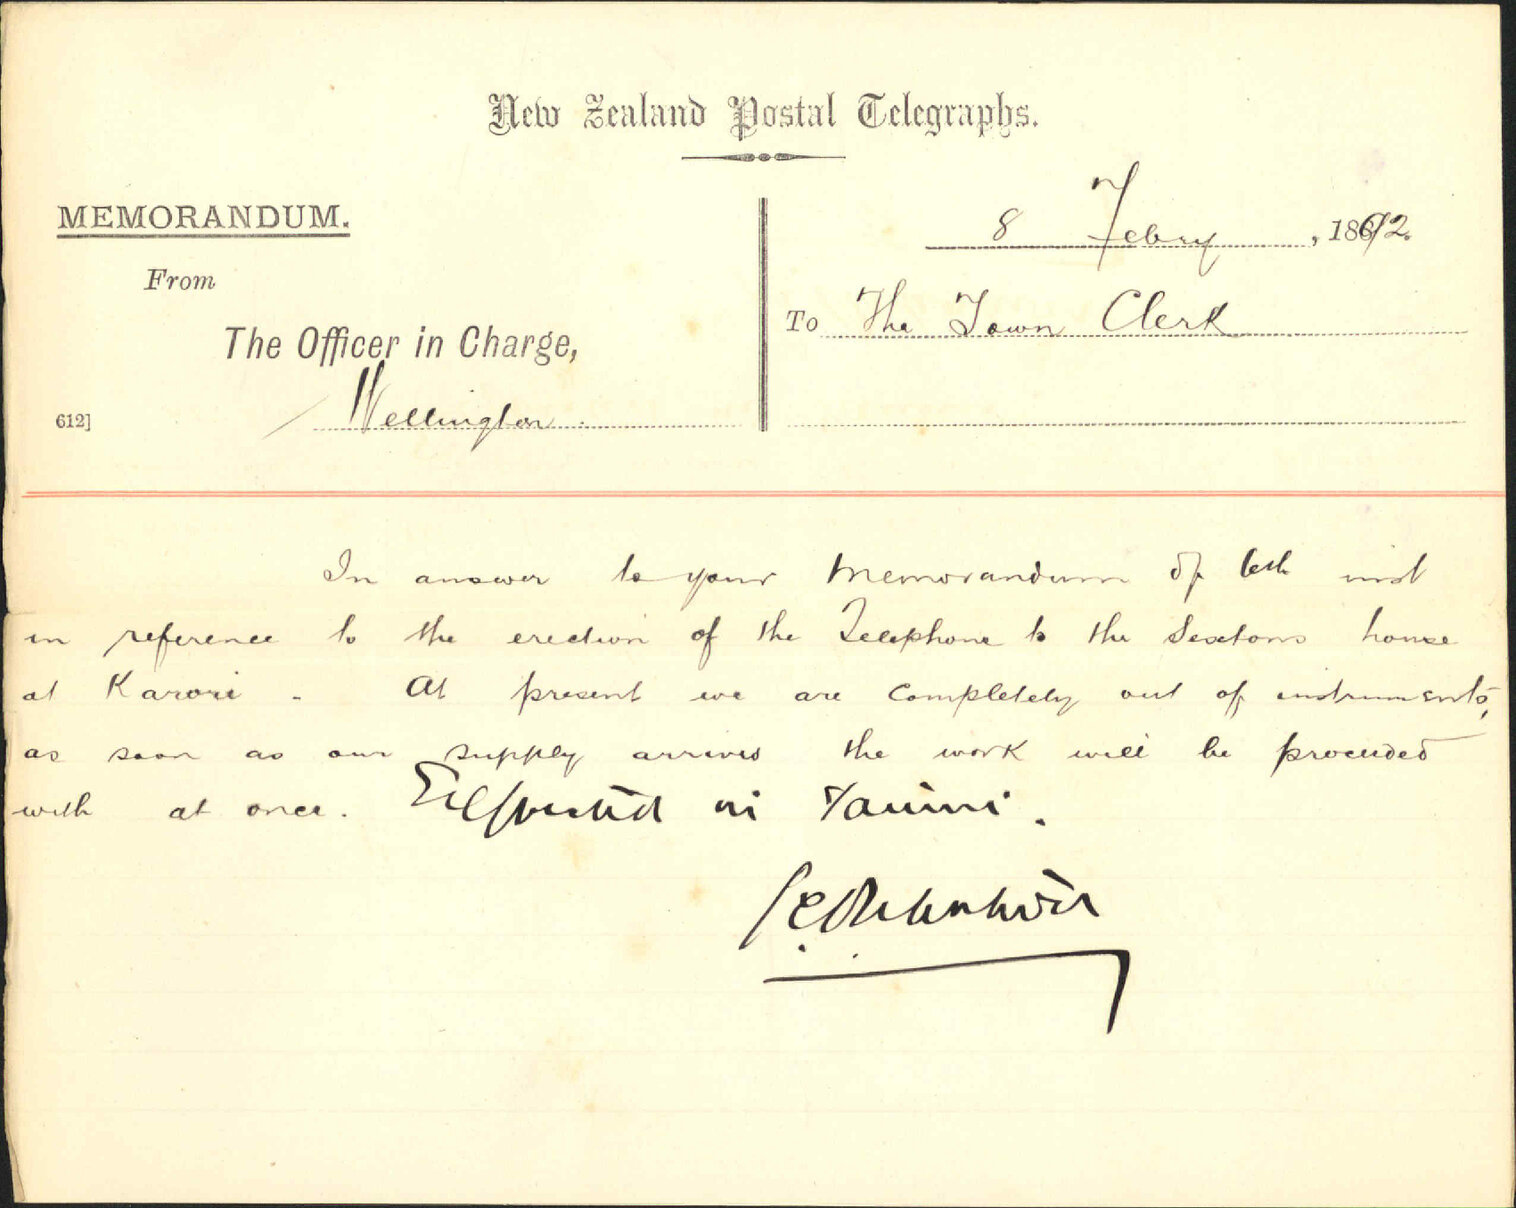 New Zealand Postal Telegraphs.
MEMORANDUM.
8 Febry , 1892.
From
To The Town Clerk
The Officer in Charge,
Wellington.
612]
In answer to your Memorandum of 6th inst
in reference to the erection of the Telephone to the Sextons house
at Karori - At present we are completely out of instruments,
as soon as our supply arrives the work will be proceeded
with at once. Expected in